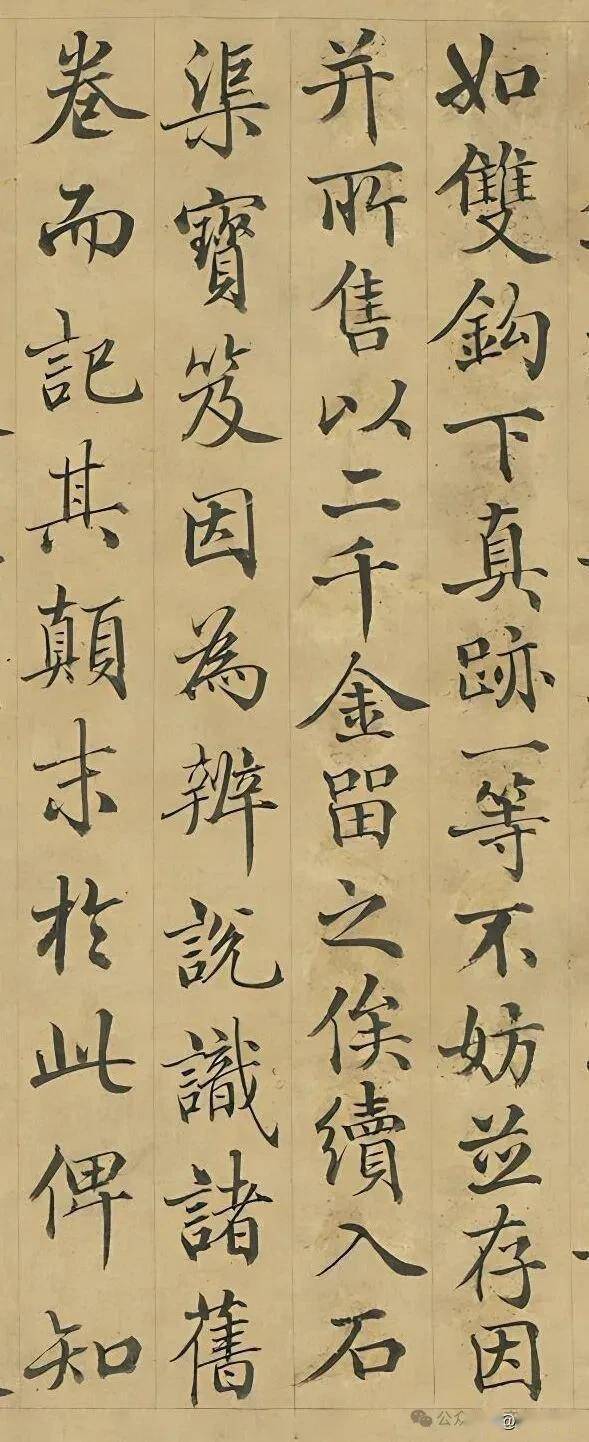 如雙鈎下真跡一等不妨並存因
并所售以二千金留之俟續入石
渠寶笈因為辨說識諸舊
卷而記其顛末於此俾知
公众
@